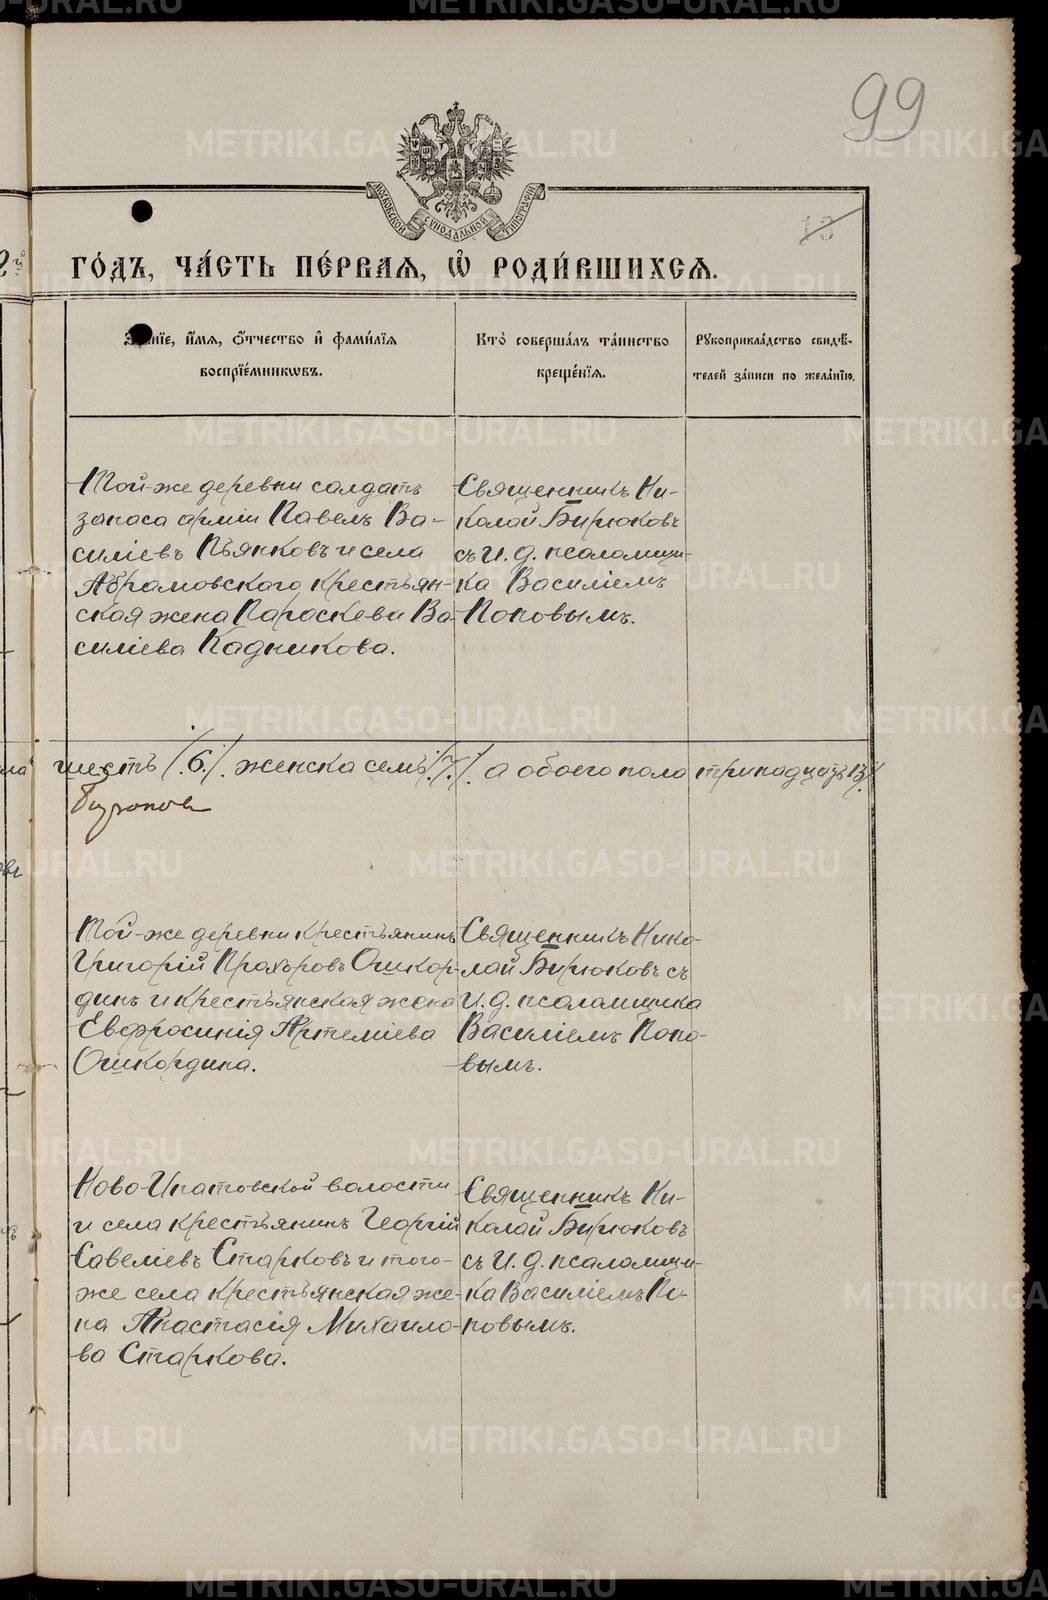 METRIKI.GASO-URAL.RU
99
МОСКОВСКОЙ СѴНОДАЛЬНОЙ ТИПОГРАФІИ
13
го́дъ, ча́сть пе́рваѧ, ѡ҆ роди́вшихсѧ.
и҆́мѧ, ѻ҆́тчество и҆ фами́лїѧ
воспрїе́мникѡвъ.
Кто̀ соверша́лъ та́инство
креще́нїѧ.
Рꙋкоприкла́дство свидѣ́-
телей за́писи по жела́нїю.
Той-же деревни солдатъ
запаса арміи Павелъ Ва-
силіевъ Пьянковъ и села
Абрамовского крестьян-
ская жена Параскева Ва-
силіева Кадникова.
Священникъ Ни-
колай Бирюковъ
съ И. д. псаломщи-
ка Василіемъ
Поповымъ.
шесть /.6./. женска семь /.7./. а обоего пола тринадцать 13/.
Той-же деревни крестьянинъ
Григорій Прохоровъ Ошкор-
динъ и крестьянская жена
Евфросинія Артеміева
Ошкордина.
Священникъ Нико-
лай Бирюковъ съ
И. д. псаломщика
Василіемъ Попо-
вымъ.
Ново-Ипатовской волости
и села крестьянинъ Георгій
Савеліевъ Старковъ и того-
же села крестьянская же-
на Анастасія Михаило-
ва Старкова.
Священникъ Ни-
колай Бирюковъ
съ И. д. псаломщи-
ка Василіемъ По-
повымъ.